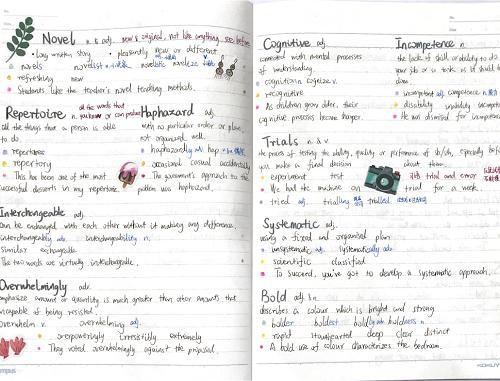 Novel n & adj. new & original, not like anything seen before
• Long written story • pleasantly new or different
novels novelist novelistic novelize v.
refreshing new
Students like the teacher's novel teaching methods.
Repertoire n. all the words that you know or can produce
all the things that a person is able to do
repertoires
repertory
This has been one of the most
successful desserts in my repertoire.
Haphazard adj.
with no particular order or plan,
not organized well.
haphazardly adv. hap
occasional casual accidentally
The government's approach to the
problem was haphazard.
Interchangeable adj.
can be exchanged with each other without it making any difference.
interchangeably adv. interchangeability n.
similar exchangable
The two words are virtually interchangeable.
Overwhelmingly adv.
emphasize amount or quantity is much greater than other amounts that
incapable of being resisted.
overwhelm v. overwhelming adj.
overpoweringly irresistibly extremely
They voted overwhelmingly against the proposal.
Cognitive adj.
connected with mental processes
of understanding
cognition n. cognize v.
recognitive
As children grow older, their
cognitive process become sharper.
Incompetence n.
the lack of skill or ability to do
your job or a task as it should be
done
incompetent adj. competence n.
disability inability
He was dismissed for incompetence
Trials n. & v.
the process of testing the ability, quality or performance of sb/sth, especially before
you make a final decision about them.
experiment test with trial and error
We had the machine on trial for a week.
tried adj. trialling trialled
Systematic adj.
using a fixed and organised plan
unsystematic adj. systematically adv.
scientific classified
To succeed, you've got to develop a systematic approach.
Bold adj. & n.
describes a colour which is bright and strong
bolder boldest boldly adv. boldness n.
rapid deep clear distinct
A bold use of colour characterizes the bedroom.